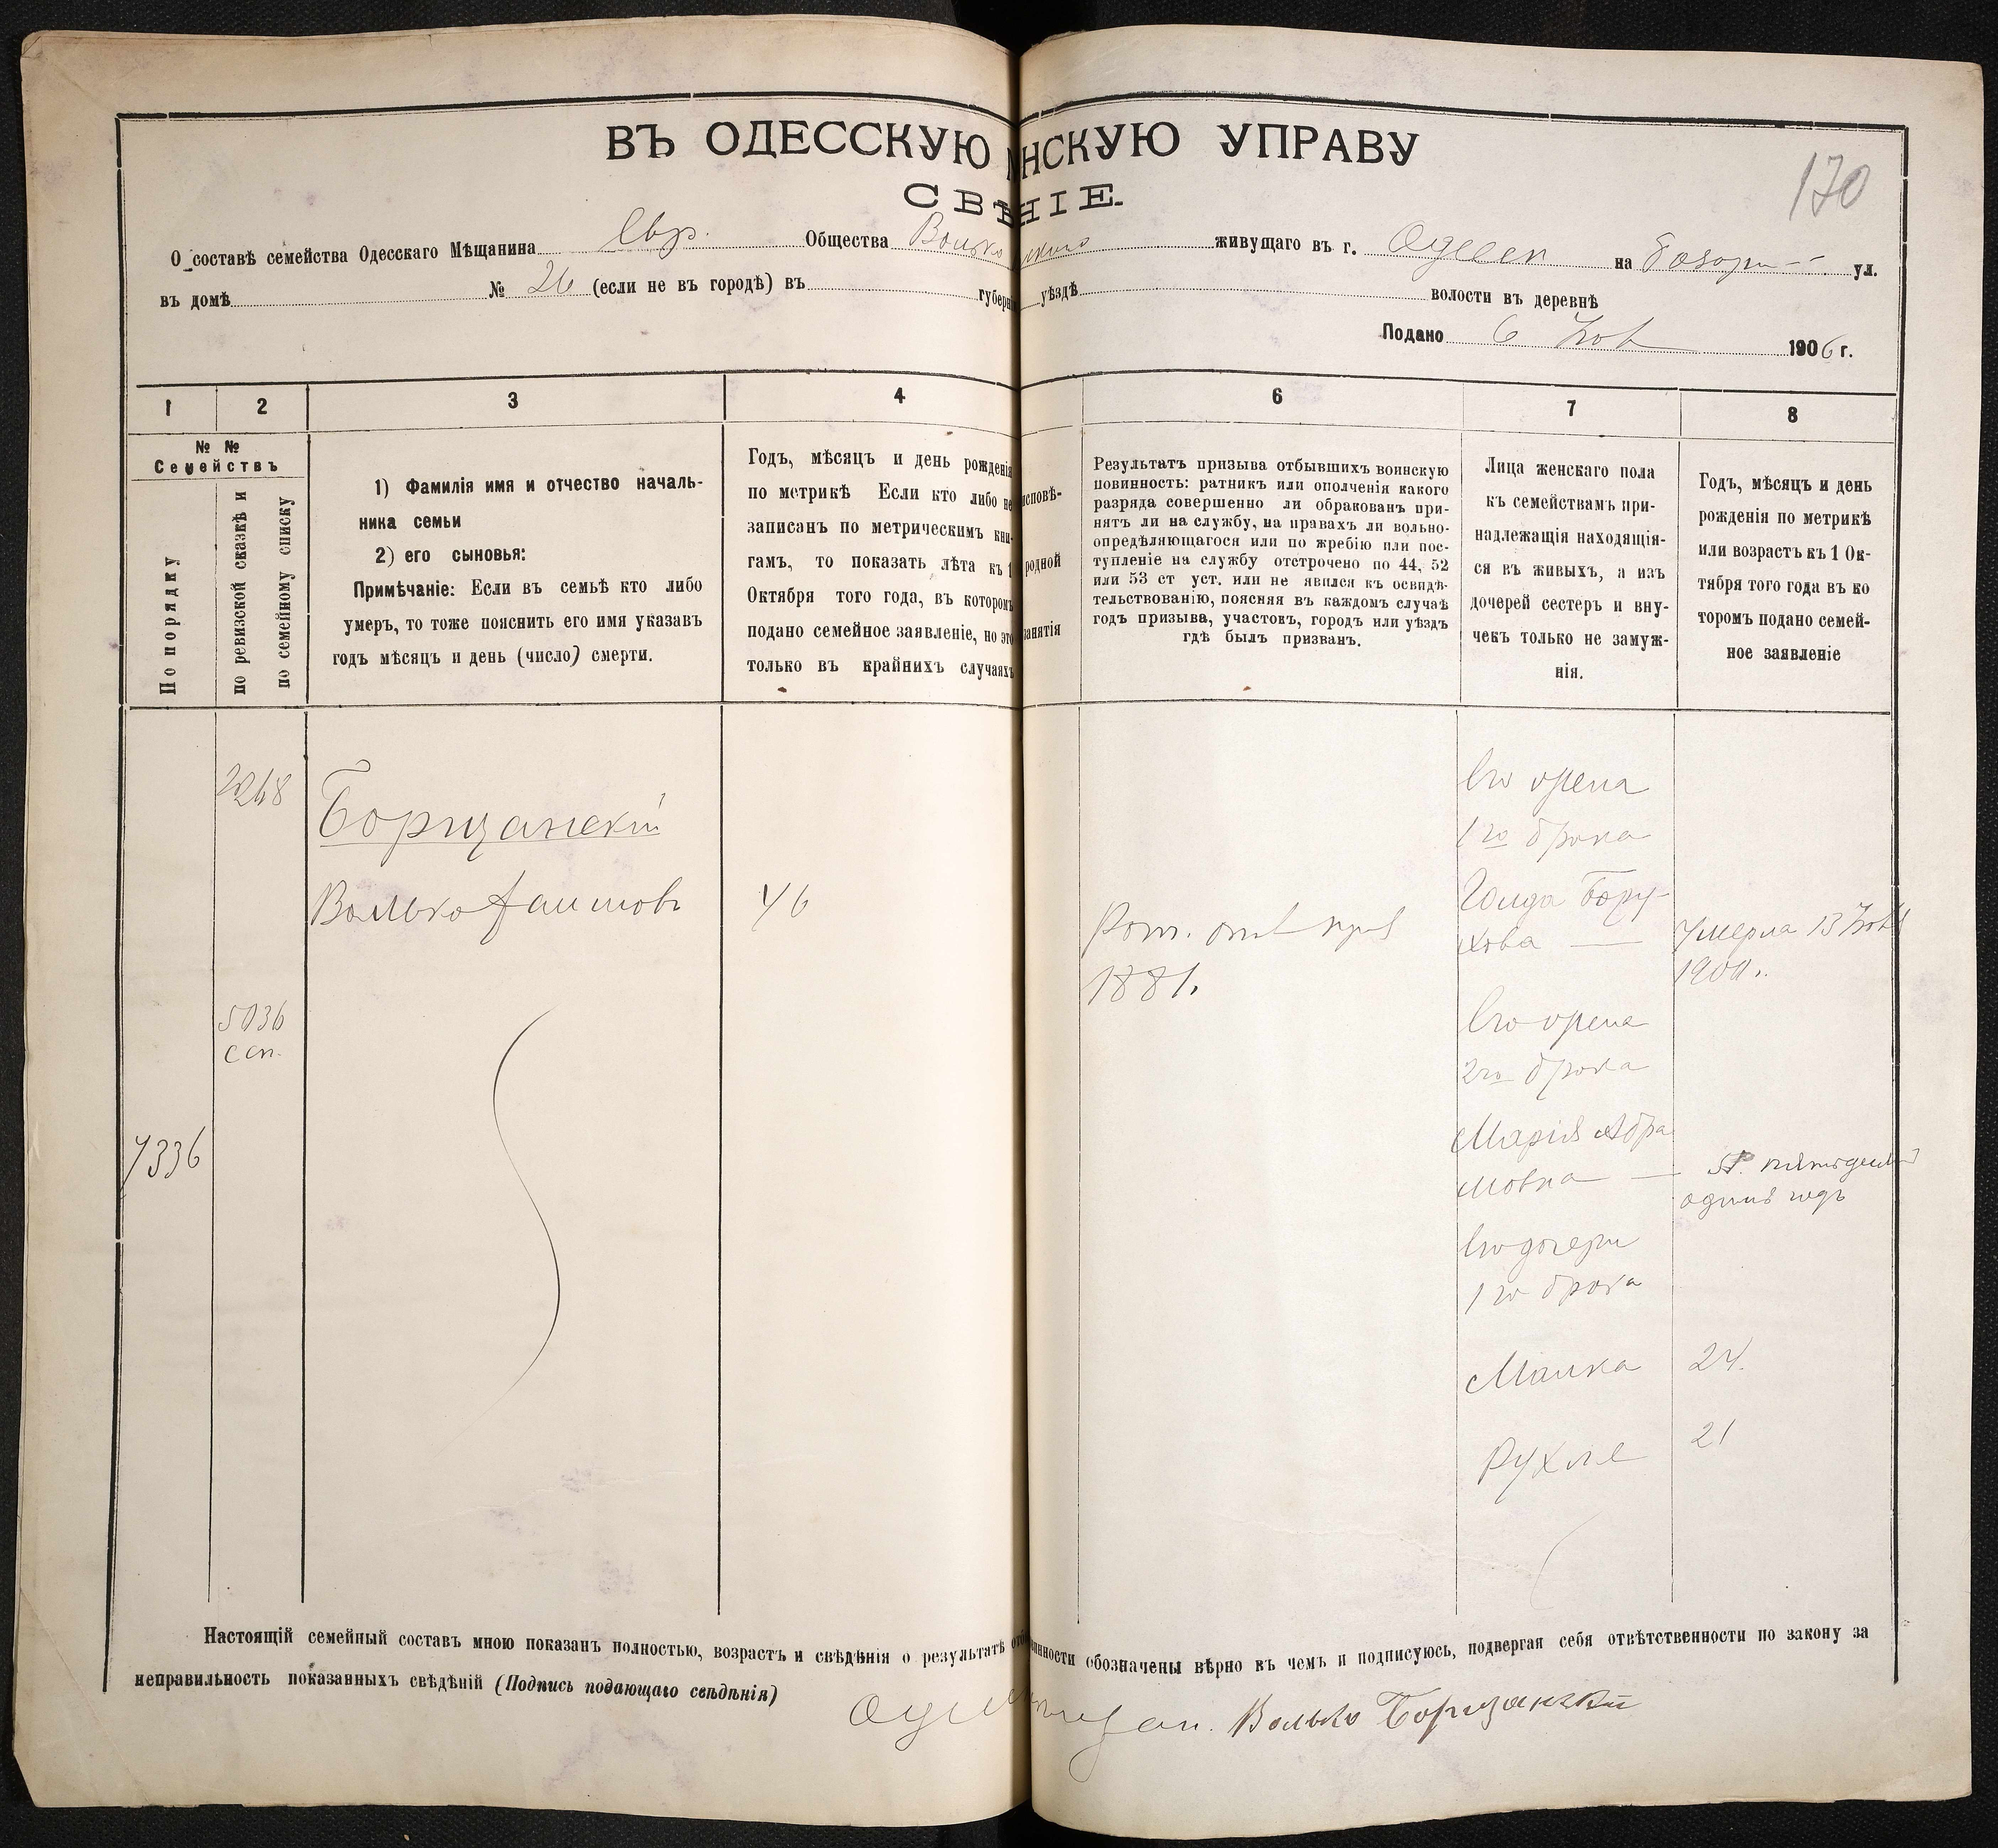 ВЪ ОДЕССКУЮ НСКУЮ УПРАВУ
СВѢНІЕ.
170
О составѣ семейства Одесскаго Мѣщанина Евр. Общества живущаго въ г. Одессѣ на Базарн-- ул.
въ домѣ № 26 (если не въ городѣ) въ губерні уѣздѣ волости въ деревнѣ
Подано 6 Ноя 1906 г.
1 2 3 4 6 7 8
№ №
Семействъ
По порядку
по ревизской сказкѣ и
по семейному списку
1) Фамилія имя и отчество началь-
ника семьи
2) его сыновья:
Примѣчаніе: Если въ семьѣ кто либо
умеръ, то тоже пояснить его имя указавъ
годъ мѣсяцъ и день (число) смерти.
Годъ, мѣсяцъ и день рожденія
по метрикѣ Если кто либо не
записанъ по метрическимъ кни-
гамъ, то показать лѣта къ 1
Октября того года, въ которомъ
подано семейное заявленіе, но это
только въ крайнихъ случаяхъ
исповѣ-
родной
занятія
Результатъ призыва отбывшихъ воинскую
повинность: ратникъ или ополченія какого
разряда совершенно ли обракованъ при-
нятъ ли на службу, на правахъ ли вольно-
опредѣляющагося или по жребію или пос-
тупленіе на службу отстрочено по 44, 52
или 53 ст уст. или не явился къ освидѣ-
тельствованію, поясняя въ каждомъ случаѣ
годъ призыва, участокъ, городъ или уѣздъ
гдѣ былъ призванъ.
Лица женскаго пола
къ семействамъ при-
надлежащія находящія-
ся въ живыхъ, а изъ
дочерей сестеръ и вну-
чекъ только не замуж-
нія.
Годъ, мѣсяцъ и день
рожденія по метрикѣ
или возрастъ къ 1 Ок-
тября того года въ ко
торомъ подано семей-
ное заявленіе
2268
5036
ссп.
7336
Борщанскій
Волько Хаимовъ
46
Рат. опол приз
1881.
Его жена
1го брака
Голда Бору-
хова —
Умерла 13 Нояб
1900г.
Его жена
2го брака
Марія Абра
мовна —
51. пятьдесят
одинъ годъ
Его дочери
1го брака
Малка
24.
Рухля
21
Настоящій семейный составъ мною показанъ полностью, возрастъ и свѣдѣнія о результатѣ отб инности обозначены вѣрно въ чемъ и подписуюсь, подвергая себя отвѣтственности по закону за
неправильность показанныхъ свѣдѣній (Подпись подающаго свѣдѣнія)
Волько Борщанскій